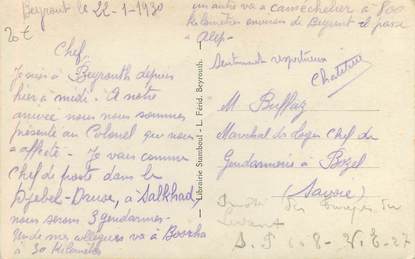 Beyrout le 22-1-1930
20€
Chef
Je suis à Beyrouth depuis
hier à midi. A notre
arrivée nous nous sommes
présenté au Colonel qui nous
a affecté. Je vais comme
Chef de poste dans le
Djebel-Druse, à Salkhad,
nous serons 3 gendarmes.
Un de mes collègues va à Bosrha
à 30 kilomètres
un autre va à
kilomètres environ de Beyrout il passe
à Alep
Sentiments respectueux
Librairie Stamboul - L. Férid, Beyrouth.
M Buffaz
Maréchal des logis Chef de
Gendarmerie à Bozel
(Savoie)
Troupes du
Levant